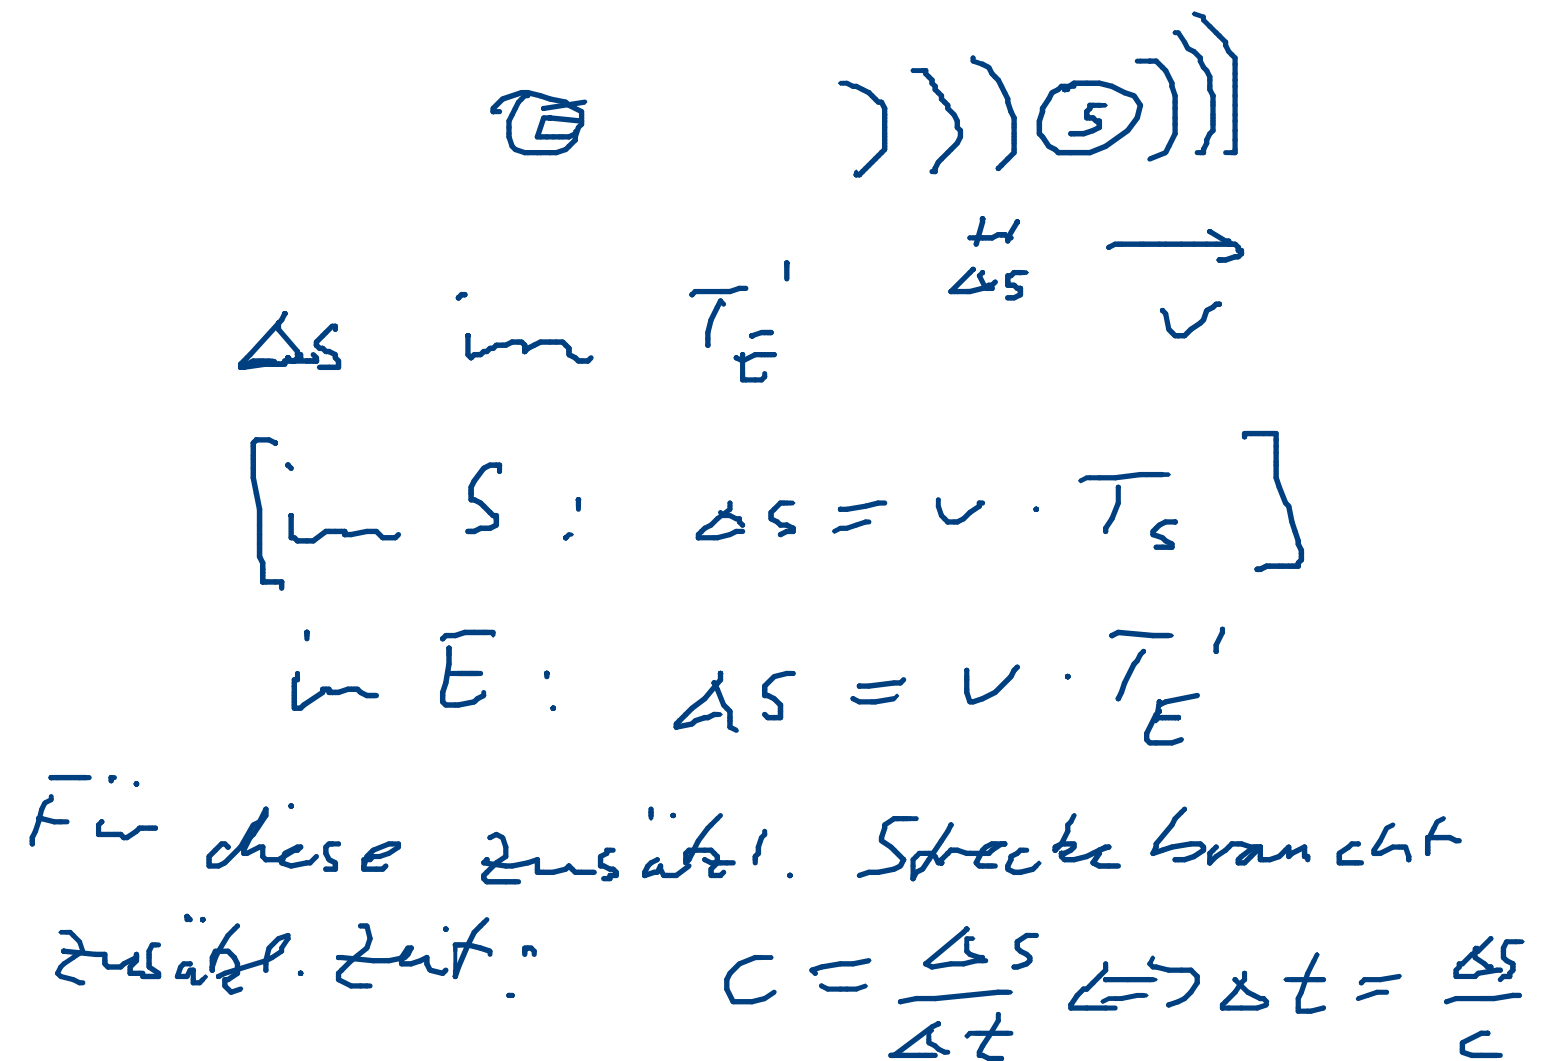 E S
Δs v
Δs im T_E'
[im S: Δs = v · T_S]
im E: Δs = v · T_E'
Für diese zusätzl. Strecke braucht
zusätzl. Zeit: c = Δs/Δt ⇔ Δt = Δs/c